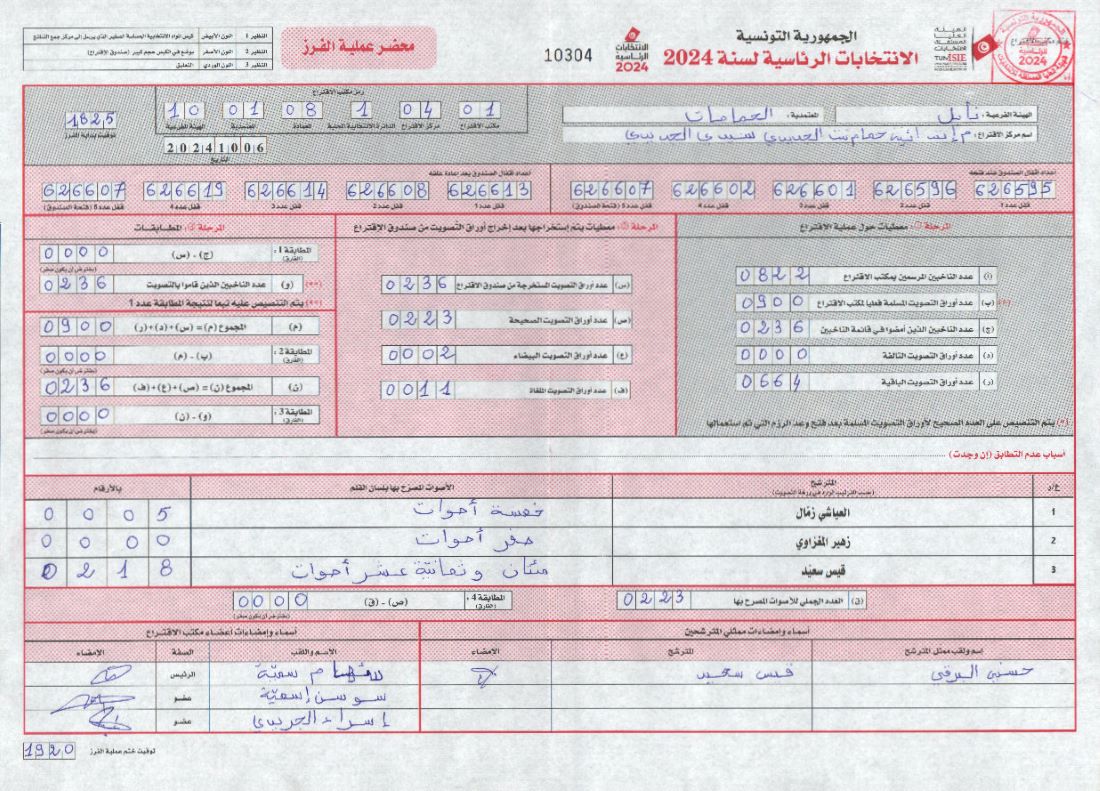 الجمهورية التونسية
الانتخابات الرئاسية لسنة 2024
الانتخابات الرئاسية 2024
10304
محضر عملية الفرز
النظير 1 اللون الأبيض
النظير 2 اللون الأصفر يوضع في الكيس حجم كبير (صندوق الاقتراع)
النظير 3 اللون الوردي التعليق
الهيئة الفرعية: نابل المعتمدية: الحمامات
رمز مكتب الاقتراع
01 04 1 08 01 10
مكتب الاقتراع مركز الاقتراع الدائرة الانتخابية المحلية العمادة المعتمدية الهيئة الفرعية
20241006
التاريخ
1825
توقيت بداية الفرز
اسم مركز الاقتراع: سيدي الجديدي
أعداد أقفال الصندوق عند فتحه
626595 626596 626601 626602 626607
قفل عدد 1 قفل عدد 2 قفل عدد 3 قفل عدد 4 قفل عدد 5 (فتحة الصندوق)
أعداد أقفال الصندوق بعد إعادة غلقه
626613 626608 626614 626619 626607
قفل عدد 1 قفل عدد 2 قفل عدد 3 قفل عدد 4 قفل عدد 5 (فتحة الصندوق)
المرحلة 1: معطيات حول عملية الاقتراع
(أ) عدد الناخبين المرسمين بمكتب الاقتراع 0822
(ب) عدد أوراق التصويت المسلمة فعليا لمكتب الاقتراع 0900
(ج) عدد الناخبين الذين أمضوا في قائمة الناخبين 0236
(د) عدد أوراق التصويت التالفة 0000
(ر) عدد أوراق التصويت الباقية 0664
(*) يتم التنصيص على العدد الصحيح لأوراق التصويت المسلمة بعد فتح وعد الرزم التي تم استعمالها
المرحلة 2: معطيات يتم إستخراجها بعد إخراج أوراق التصويت من صندوق الإقتراع
(س) عدد أوراق التصويت المستخرجة من صندوق الاقتراع 0236
(ص) عدد أوراق التصويت الصحيحة 0223
(ع) عدد أوراق التصويت البيضاء 0002
(ف) عدد أوراق التصويت الملغاة 0011
المرحلة 3: المطابقات
المطابقة 1: (الفارق) (ج) - (س) 0000
(يفترض أن يكون صفر)
(**) (و) عدد الناخبين الذين قاموا بالتصويت 0236
(**) يتم التنصيص عليه تبعا لنتيجة المطابقة عدد 1
(م) المجموع (م) = (س)+(د)+(ر) 0900
المطابقة 2: (الفارق) (ب) - (م) 0000
(يفترض أن يكون صفر)
(ن) المجموع (ن) = (ص)+(ع)+(ف) 0236
المطابقة 3: (الفارق) (و) - (ن) 0000
(يفترض أن يكون صفر)
أسباب عدم التطابق (إن وجدت)
ع/د المترشح (حسب الترتيب الوارد في ورقة التصويت) الأصوات المصرح بها بلسان القلم بالأرقام
1 العياشي زمّال خمسة أصوات 0005
2 زهير المغزاوي صفر أصوات 0000
3 قيس سعيّد مئتان وثمانية عشر أصوات 0218
(ق) العدد الجملي للأصوات المصرح بها 0223
المطابقة 4: (الفارق) (ص) - (ق) 0000
(يفترض أن يكون صفر)
أسماء وإمضاءات ممثلي المترشحين
إسم ولقب ممثل المترشح المترشح الامضاء
حسني البرقي قيس سعيد
أسماء وإمضاءات أعضاء مكتب الاقتراع
الإسم واللقب الصفة الامضاء
الرئيس
سوسن عضو
إسراء الجديدي عضو
توقيت ختم عملية الفرز 1920